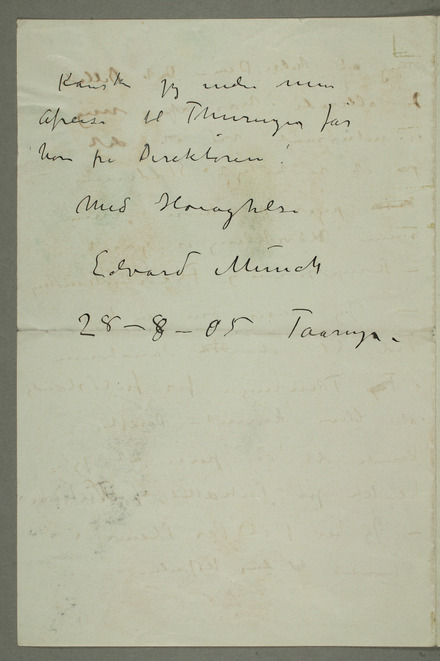 Kanske jeg inden min
Afreise til Thüringen får
høre fra Direktøren!
Med Høiagtelse
Edvard Munch
28–8–05 Taarnga.